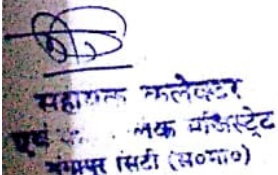 सहायक कलेक्टर
एवं मजिस्ट्रेट
गंगापुर सिटी (स०मा०)